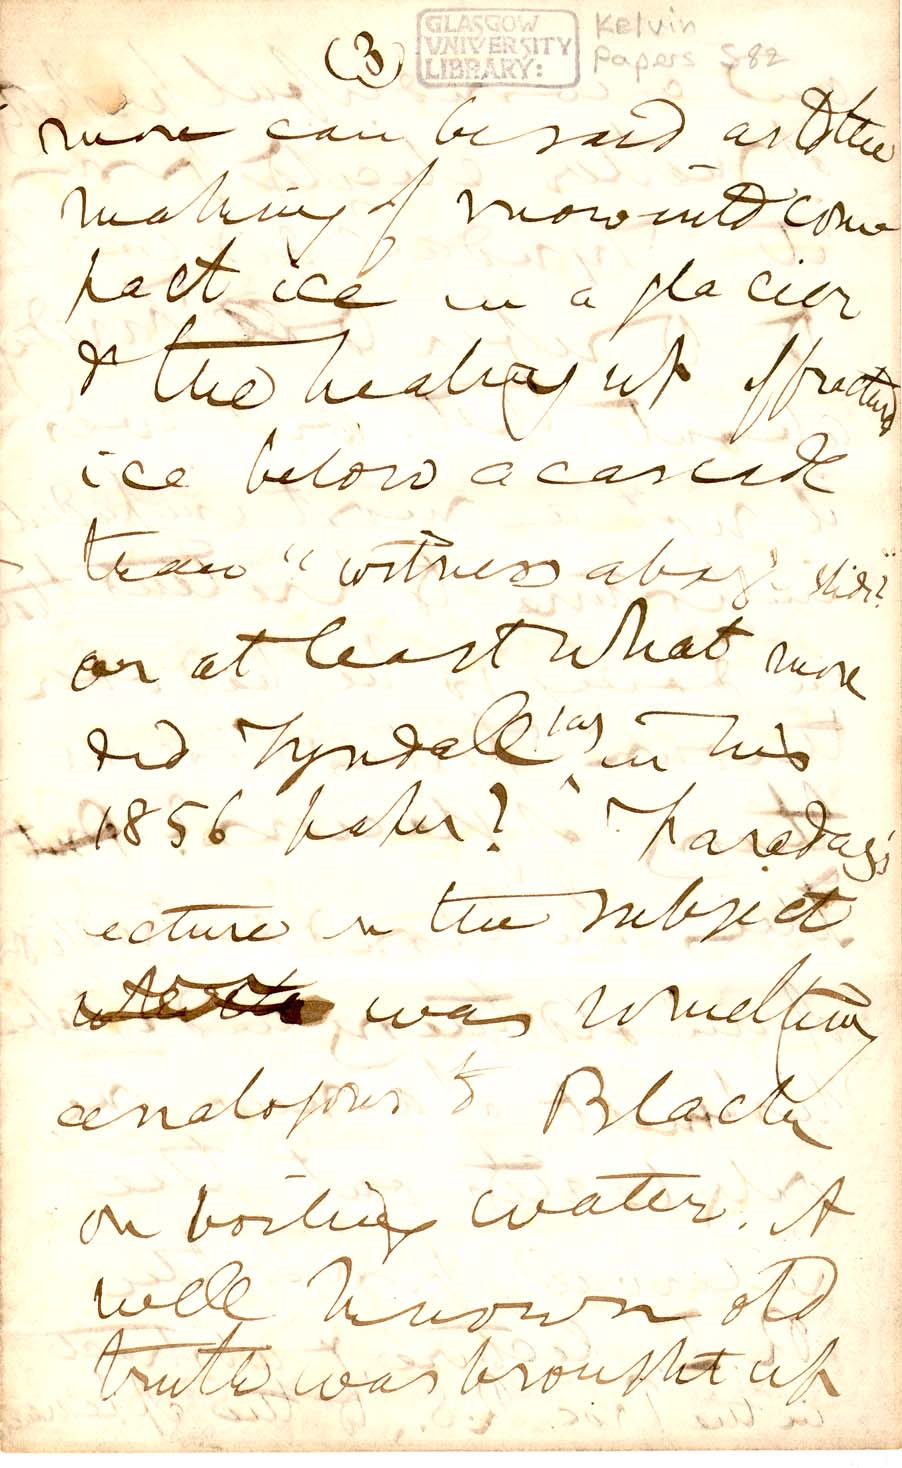 (3)
GLASGOW
UNIVERSITY
LIBRARY:
Kelvin
Papers S82
more can be said as to the
making of snow into com
pact ice in a glacier
& the healing up of fractured
ice below a cascade
than "witness a bag slide"?
or at least what more
did Tyndall say in his
1856 paper? Faraday's
ecture on the subject
was something
analogous to Black
on boiling water. A
well known old
truth was brought up